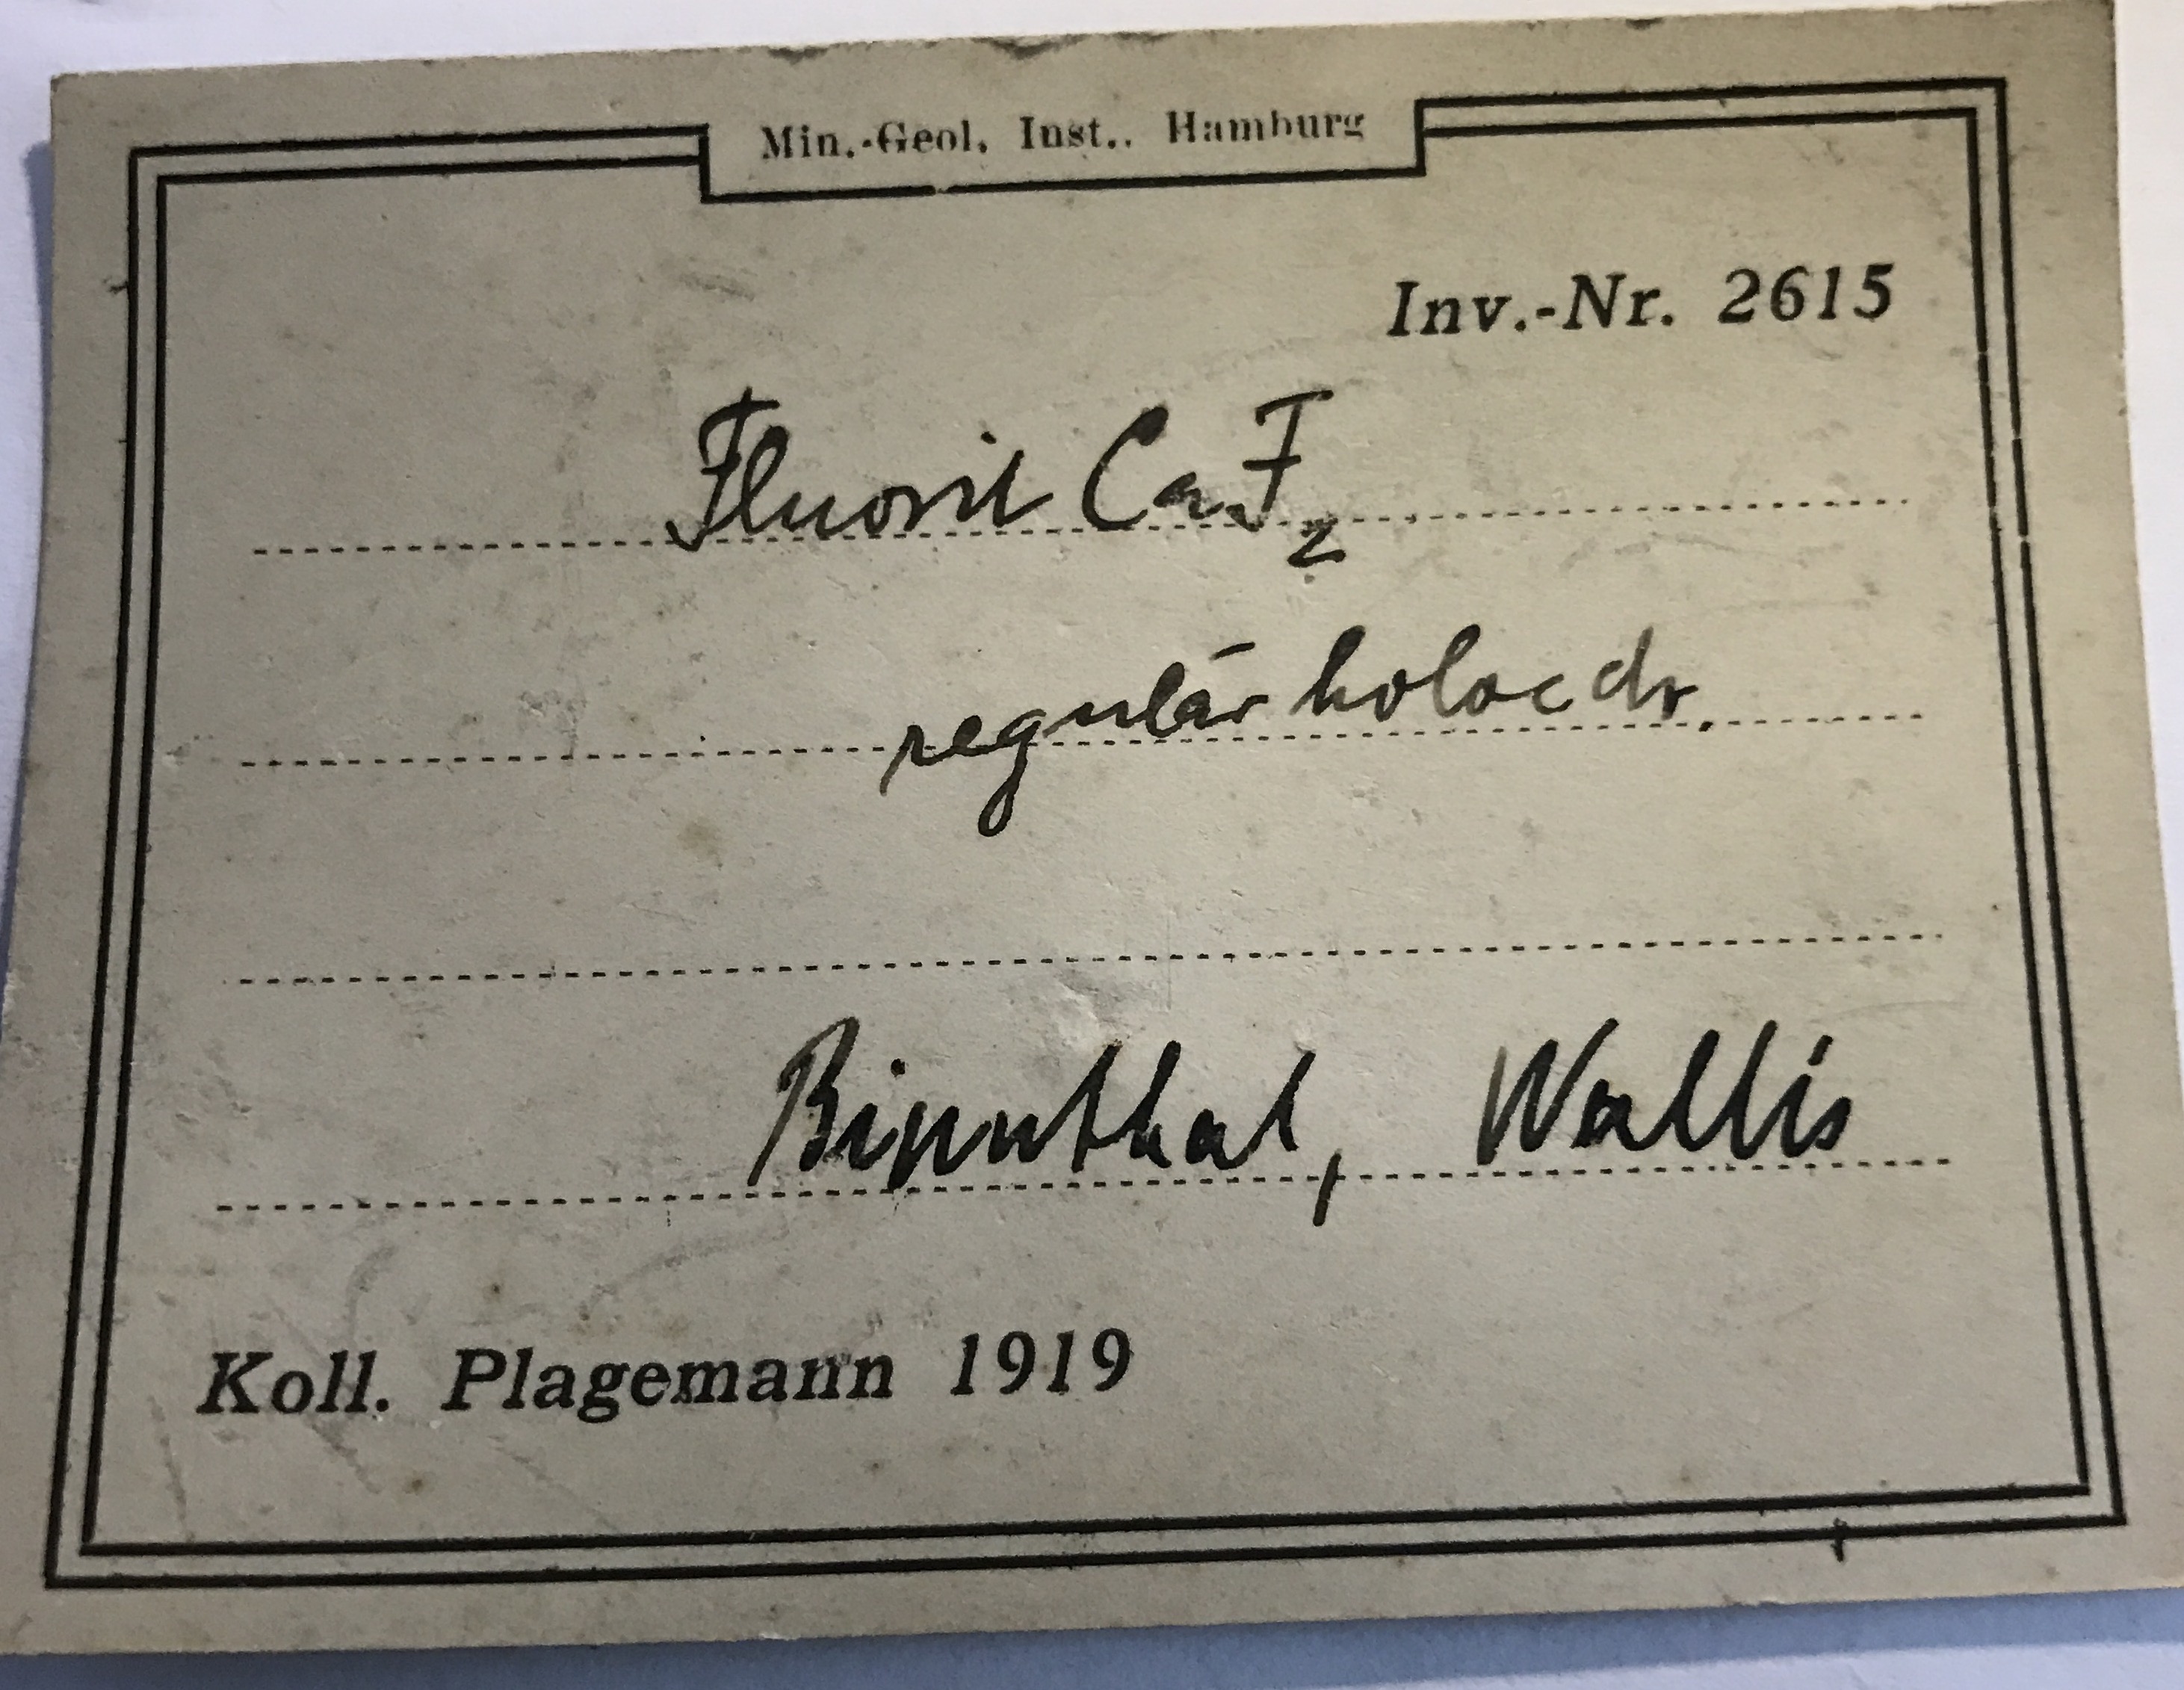 Min.-Geol. Inst., Hamburg
Inv.-Nr. 2615
Fluorit CaF₂
regulär holoedr.
Binnthal, Wallis
Koll. Plagemann 1919